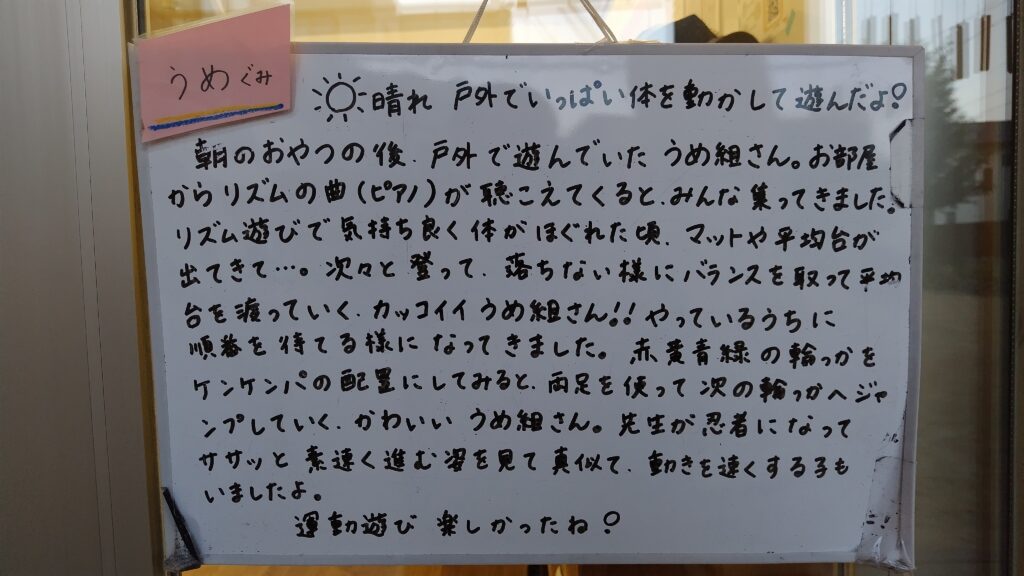 うめぐみ
晴れ 戸外でいっぱい体を動かして遊んだよ!
朝のおやつの後、戸外で遊んでいた うめ組さん。お部屋
からリズムの曲(ピアノ)が聴こえてくると、みんな集ってきました。
リズム遊びで気持ち良く体がほぐれた頃、マットや平均台が
出てきて…。次々と登って、落ちない様にバランスを取って平均
台を渡っていく、カッコイイうめ組さん!!やっているうちに
順番を待てる様になってきました。赤黄青緑の輪っかを
ケンケンパの配置にしてみると、両足を使って次の輪っかへジャ
ンプしていく、かわいい うめ組さん。先生が忍者になって
ササッと素速く進む姿を見て真似て、動きを速くする子も
いましたよ。
運動遊び 楽しかったね!